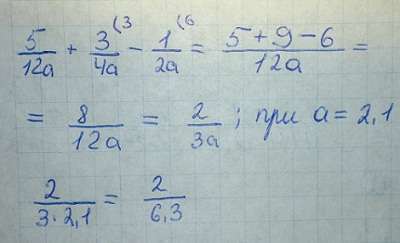 5/12a + 3/4a (3 - 1/2a (6 = (5+9-6)/12a =
= 8/12a = 2/3a ; при a = 2,1
2/(3·2,1) = 2/6,3